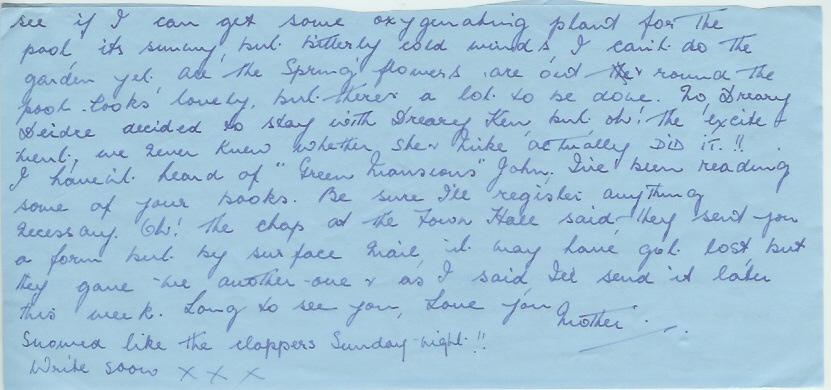 see if I can get some oxygenating plant for the
pool its sunny, but bitterly cold winds I can't do the
garden yet. All the Spring flowers are out round the
pool. Looks lovely, but there's a lot to be done. So, Dreary
Deidre decided to stay with Dreary Ken but oh! the excite-
ment, we never knew whether she & Mike actually DID IT.!!
I haven't heard of "Green Mansions" John. I've been reading
some of your books. Be sure I'll register anything
necessary. Oh! the chap at the Town Hall said they sent you
a form but by surface mail, it may have got lost but
they gave me another one & as I said I'll send it later
this week. Long to see you, Love you
Mother.
Snowed like the clappers Sunday night!!
Write soon x x x